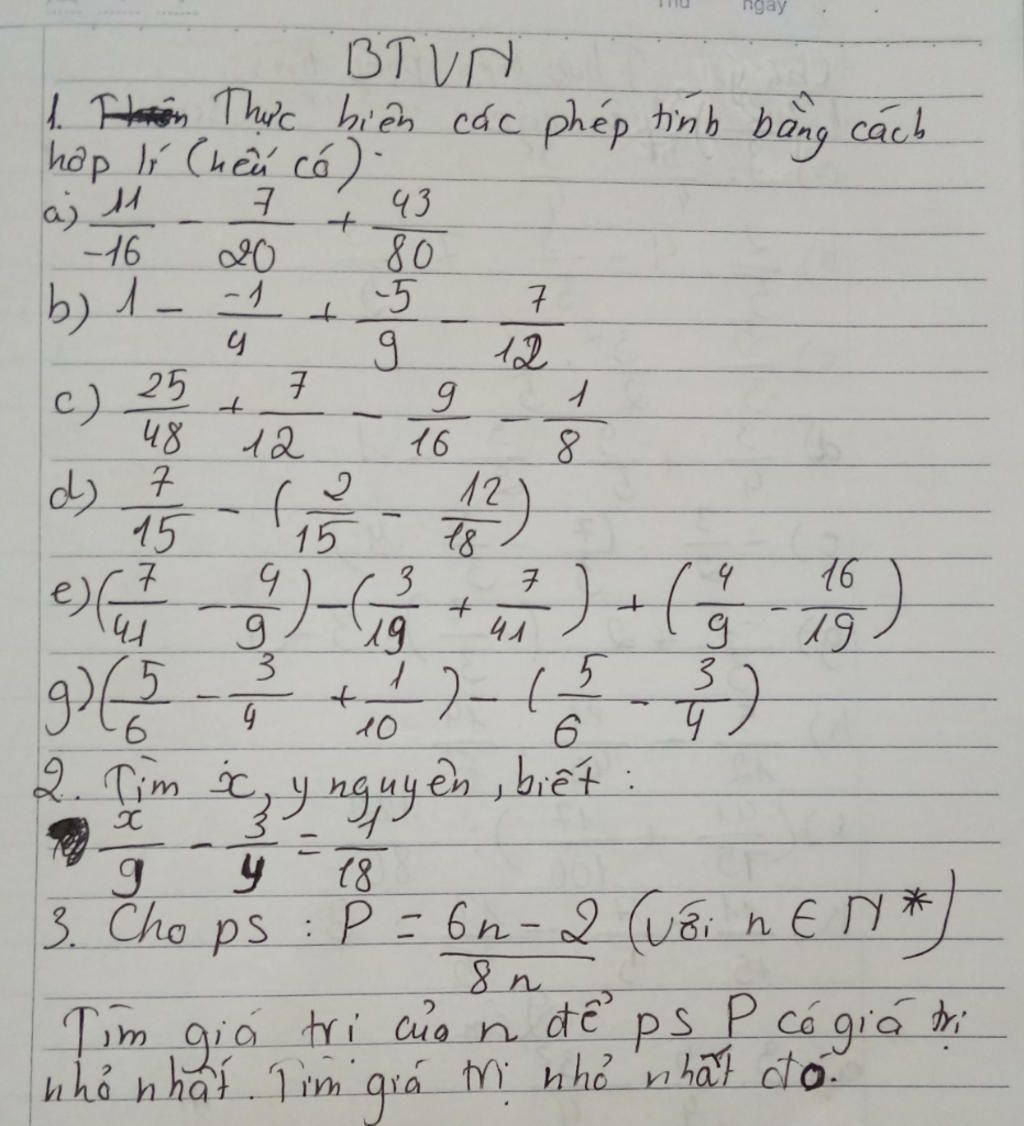 Thu ngày
BTVN
1. Thực hiện các phép tính bằng cách
hợp lí (nếu có).
a) 11/-16 - 7/20 + 43/80
b) 1 - -1/4 + -5/9 - 7/12
c) 25/48 + 7/12 - 9/16 - 1/8
d) 7/15 - (2/15 - 12/18)
e) (7/41 - 4/9) - (3/19 + 7/41) + (4/9 - 16/19)
g) (5/6 - 3/4 + 1/10) - (5/6 - 3/4)
2. Tìm x, y nguyên, biết:
x/9 - 3/y = 1/18
3. Cho ps : P = 6n - 2/8n (với n ∈ N*)
Tìm giá trị của n để ps P có giá trị
nhỏ nhất. Tìm giá trị nhỏ nhất đó.